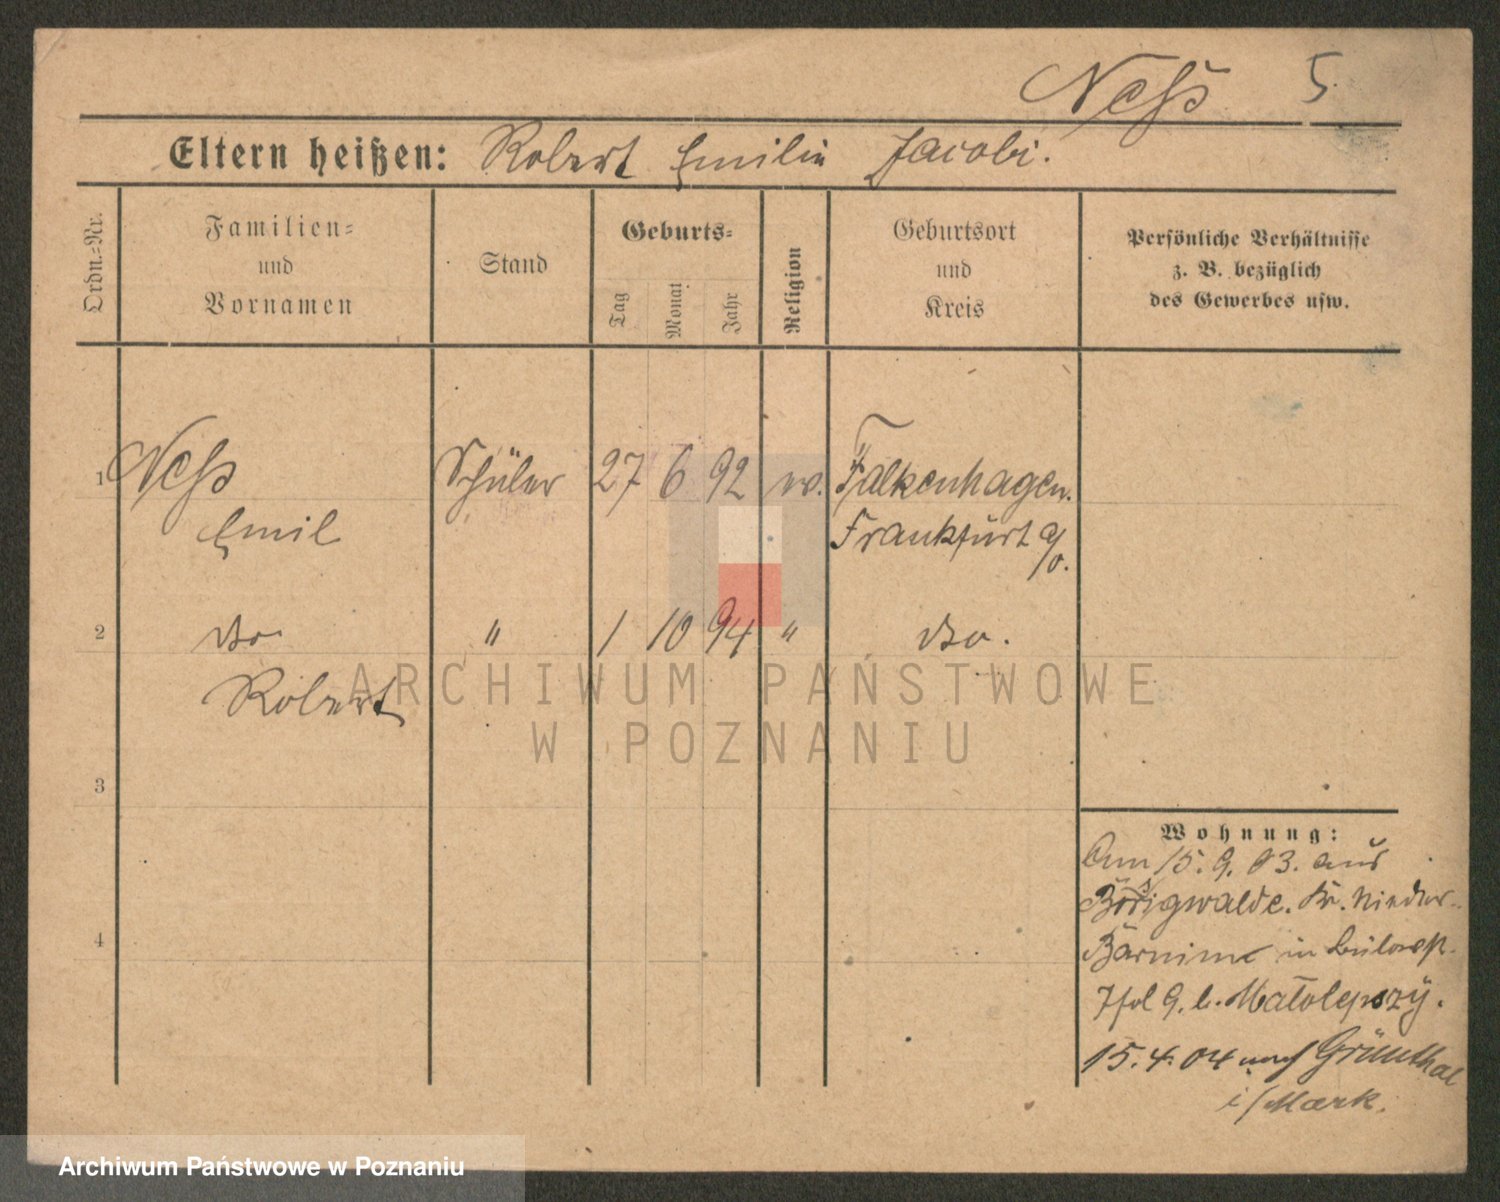 Neß 5.
Eltern heißen: Robert Emilie Jacobi.
Ordn.=Nr.
Familien=
und
Vornamen
Stand
Geburts=
Tag
Monat
Jahr
Religion
Geburtsort
und
Kreis
Persönliche Verhältnisse
z. B. bezüglich
des Gewerbes usw.
1 Neß Schüler 27 6 92 ev. Falkenhagen.
Emil Frankfurt a/o.
2 do " 1 10 94 " do.
Robert
3
4
Wohnung:
Am 15. 9. 03. aus
Börsigwalde. Kr. Nieder-
Barnim in Bülowst.
9. b. Matolepszy.
15. 4. 04 nach Grünthal
i/Mark.
ARCHIWUM PAŃSTWOWE
W POZNANIU
Archiwum Państwowe w Poznaniu